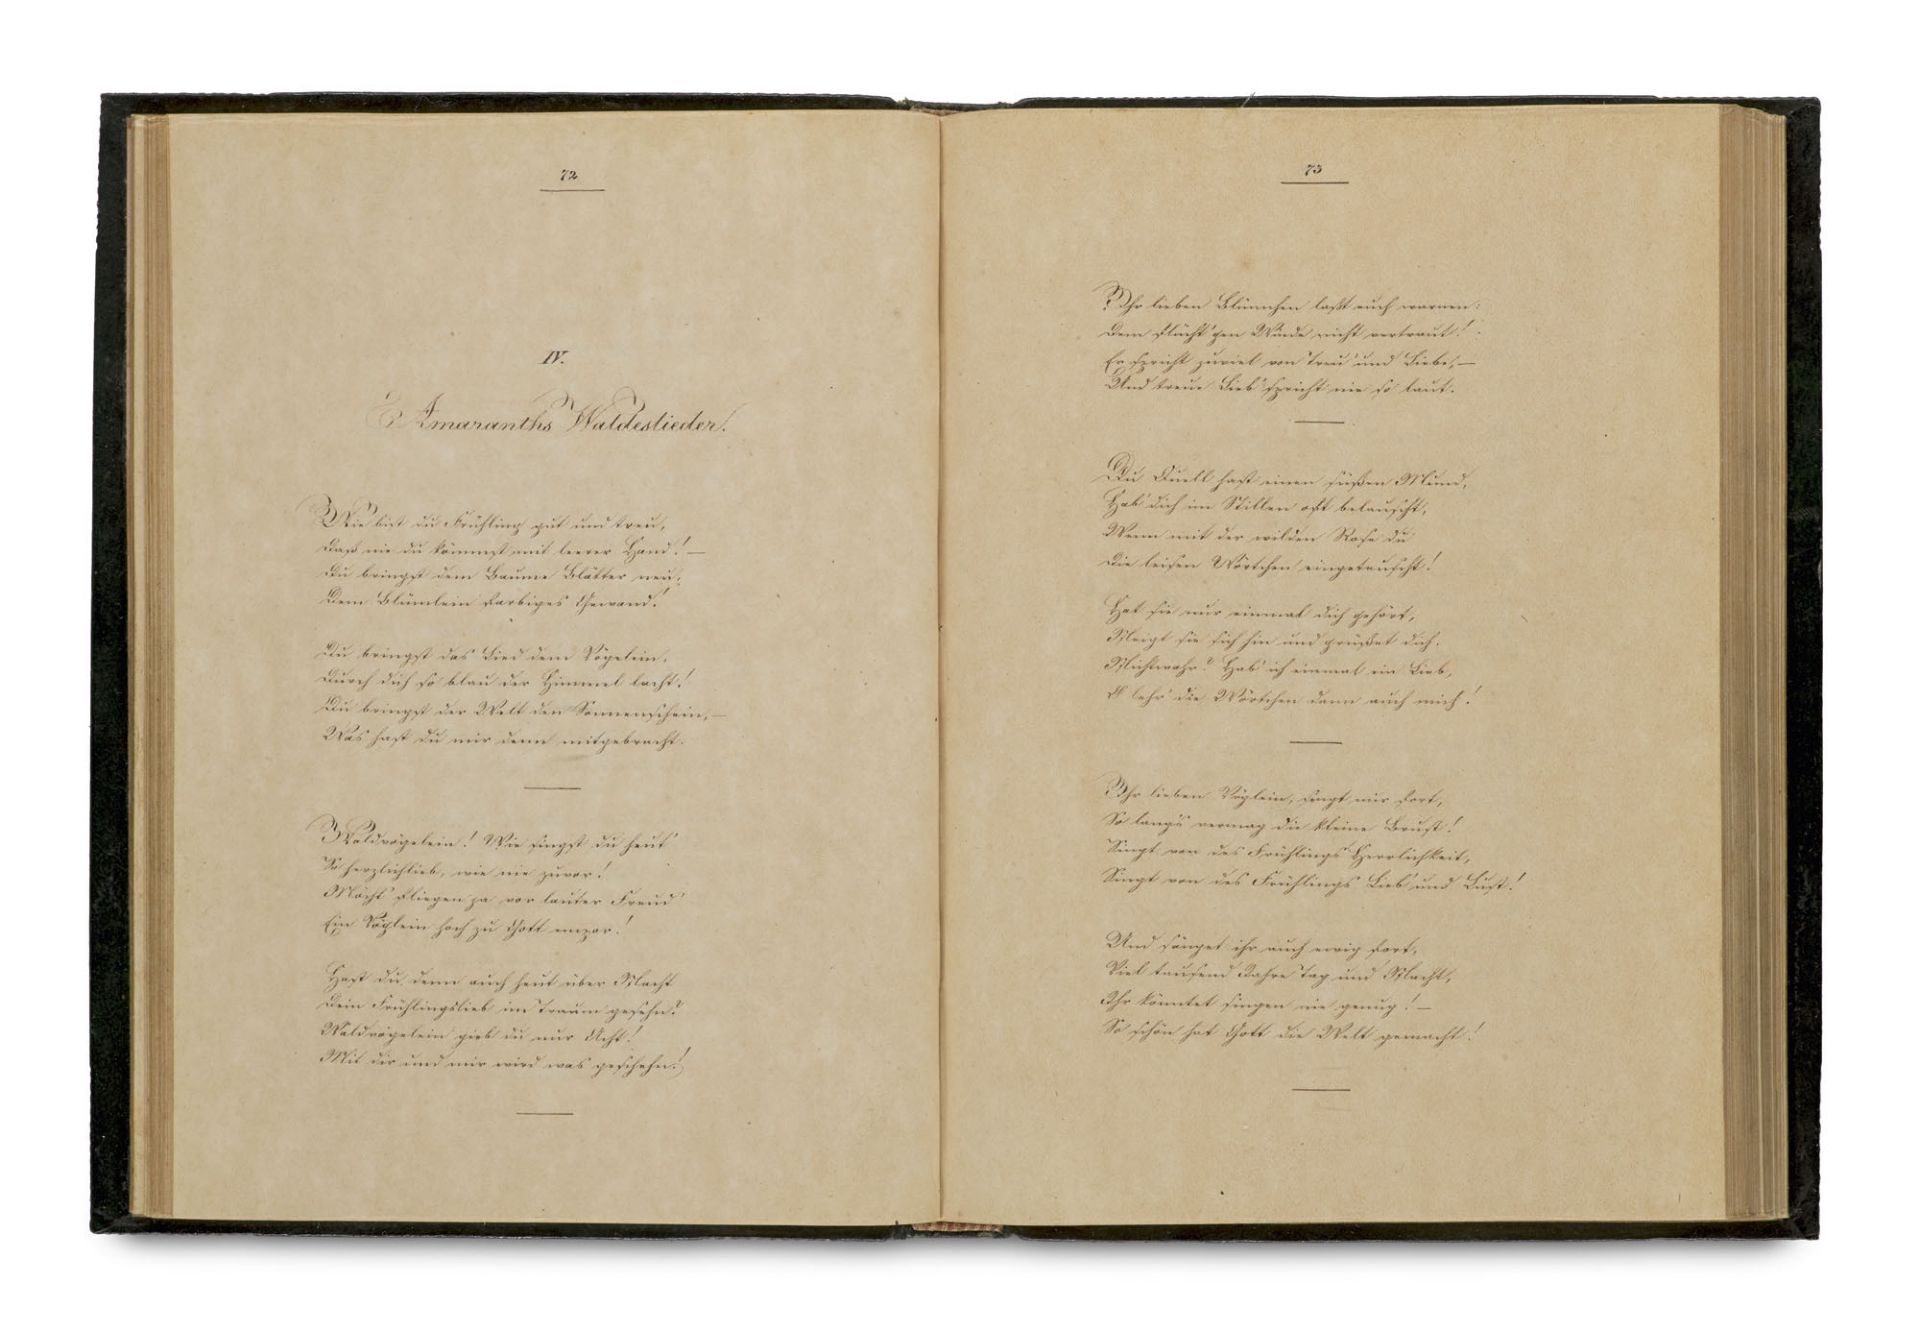 72
IV.
Amaranths Waldeslieder.
Wie bist du Frühling gut und treu,
Daß nie du kömmst mit leerer Hand! —
Du bringst dem Baume Blätter neu,
Dem Blümlein farbiges Gewand!
Du bringst das Lied dem Vögelein,
Durch dich so blau der Himmel lacht!
Du bringst der Welt den Sonnenschein, —
Was hast du mir denn mitgebracht.
Waldvögelein! Wie singst du heut
So herzlichlieb, wie nie zuvor!
Möcht' fliegen ja vor lauter Freud'
Ein Vöglein hoch zu Gott empor!
Hast du denn auch heut über Nacht
Dein Frühlingslieb im Traum gesehn?
Waldvögelein gieb du nur Acht!
Mit dir und mir wird was geschehn!
73
Ihr lieben Blümchen laßt euch warnen:
Dem flücht'gen Winde nicht vertraut!
Er spricht zuviel von Treu' und Liebe, —
Und treue Lieb' spricht nie so laut.
Du Quell hast einen süßen Mund,
Hab' dich im Stillen oft belauscht,
Wenn mit der wilden Rose du
Die leisen Wörtchen eingetauscht!
Hat sie nur einmal dich gehört,
Neigt sie sich hin und grüßet dich.
Nichtwahr? Hab' ich einmal ein Lieb,
O lehr' die Wörtchen dann auch mich!
Ihr lieben Vöglein, singt nur fort,
So lang's vermag die kleine Brust!
Singt von des Frühlings Herrlichkeit,
Singt von des Frühlings Lieb' und Lust!
Und sänget ihr auch ewig fort,
Viel tausend Jahre Tag und Nacht,
Ihr könntet singen nie genug! —
So schön hat Gott die Welt gemacht!